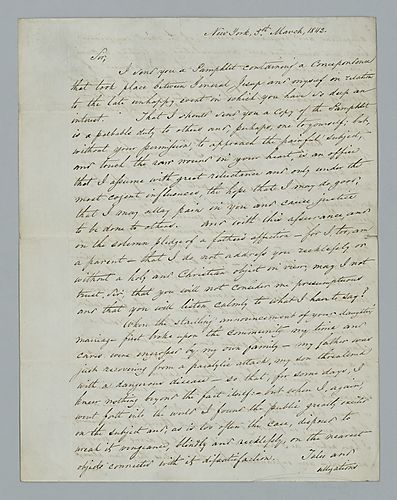 New York, 3d March, 1842.
Sir,
I send you a Pamphlet containing a Correspondence
that took place between General Jesup and myself in relation
to the late unhappy event in which you have so deep an
interest. That I should send you a Copy of the Pamphlet
is a probable duty to others and, perhaps, one to yourself; but,
without your permission, to approach the painful subject,
and touch the raw wound in your heart, is an office
that I assume with great reluctance and only under the
most cogent influences, the hope that I may do good;
that I may allay pain in you and cause Justice
to be done to others. And with this assurance, and
on the solemn pledge of a father's affection — for I, too, am
a parent — that I do not address you recklessly or
without a holy and Christian object in view, may I not
trust, Sir, that you will not consider me presumptuous
and that you will listen calmly to what I have to say?
When the startling announcement of your daughter's
marriage first broke upon the Community my time and
cares were engrossed by my own family — my father was
just recovering from a paralytic attack, my son threatened
with a dangerous disease — so that, for some days, I
knew nothing beyond the fact itself — but when I again
went forth into the world I found the public greatly excited
on the subject and, as is too often the case, disposed to
wreak its vengeance, blindly and recklessly, on the nearest
objects connected with its dissatisfaction. Tales and
allegations